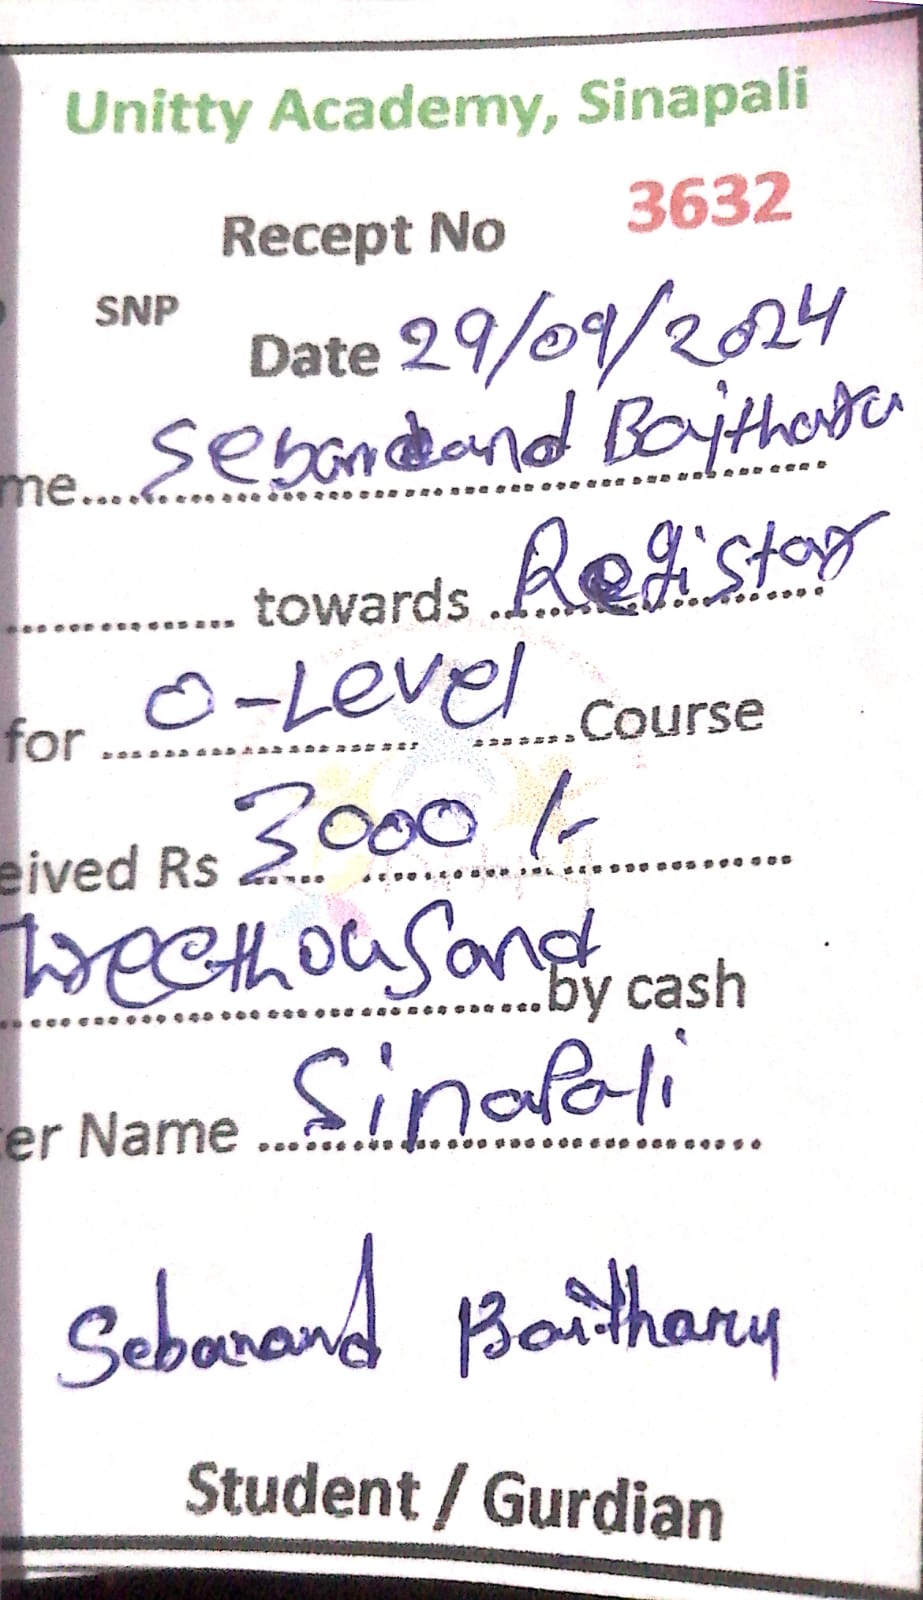 Unitty Academy, Sinapali
Recept No 3632
SNP
Date 29/09/2024
me.......... Sebanand
.............. towards .......... Registar
for .......... O-Level .......Course
eived Rs 3000 /-
hreethousand by cash
er Name .......... Sinapali
Sebanand Baithary
Student / Gurdian